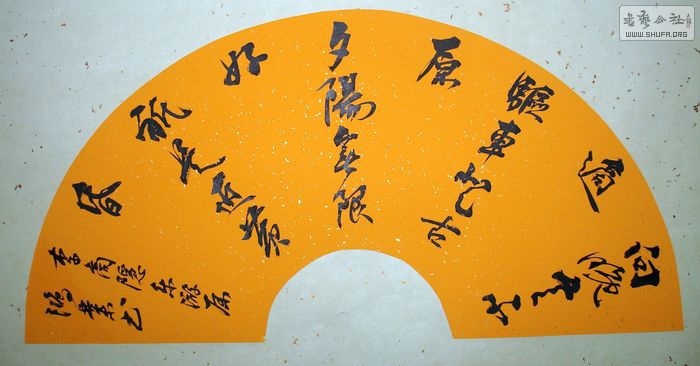 向晚意不
適
驅車登古
原
夕陽無限
好
祇是近黃
昏
乐游原
李商隱
书
書藝公社
WWW.SHUFA.ORG